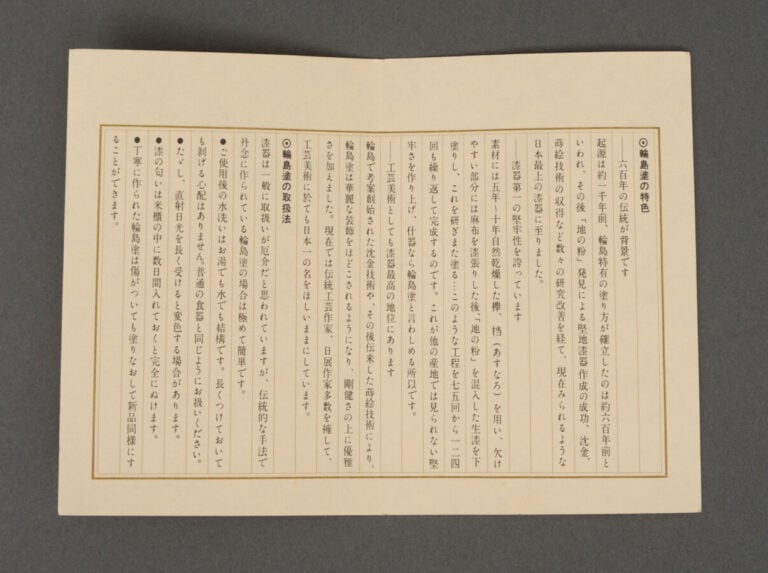 ◉輪島塗の特色
六百年の伝統が背景です
起源は約一千年前、輪島特有の塗り方が確立したのは約六百年前と
いわれ、その後「地の粉」発見による堅地漆器作成の成功、沈金、
蒔絵技術の収得など数々の研究改善を経て、現在みられるような
日本最上の漆器に至りました。
漆器第一の堅牢性を誇っています
素材には五年～十年自然乾燥した欅、档（あすなろ）を用い、欠け
やすい部分には麻布を漆張りした後、「地の粉」を混入した生漆を下
塗りし、これを研ぎまた塗る…このような工程を七五回から一二四
回も繰り返して完成するのです。これが他の産地では見られない堅
牢さを作り上げ、什器なら輪島塗と言わしめる所以です。
工芸美術としても漆器最高の地位にあります
輪島で考案創始された沈金技術や、その後伝来した蒔絵技術により、
輪島塗は華麗な装飾をほどこされるようになり、剛健さの上に優雅
さを加えました。現在では伝統工芸作家、日展作家多数を擁して、
工芸美術に於ても日本一の名をほしいままにしています。
◉輪島塗の取扱法
漆器は一般に取扱いが厄介だと思われていますが、伝統的な手法で
丹念に作られている輪島塗の場合は極めて簡単です。
●ご使用後の水洗いはお湯でも水でも結構です。長くつけておいて
も剥げる心配はありません。普通の食器と同じようにお扱いください。
●たゞし、直射日光を長く受けると変色する場合があります。
●漆の匂いは米櫃の中に数日間入れておくと完全にぬけます。
●丁寧に作られた輪島塗は傷がついても塗りなおして新品同様にす
ることができます。